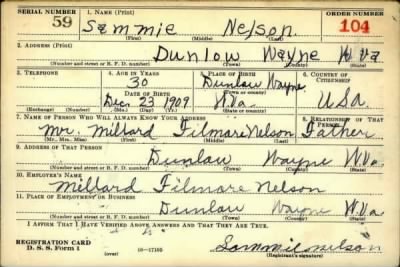 SERIAL NUMBER 1. NAME (Print) ORDER NUMBER
59 Sammie Nelson. 104
(First) (Middle) (Last)
2. ADDRESS (Print)
Dunlow Wayne W va
(Number and street or R. F. D. number) (Town) (County) (State)
3. TELEPHONE 4. AGE IN YEARS 5. PLACE OF BIRTH 6. COUNTRY OF CITIZENSHIP
30 Dunlow Wayne
DATE OF BIRTH (Town or county)
Dec. 23 1909 W.Va. USa.
(Exchange) (Number) (Mo.) (Day) (Yr.) (State or country)
7. NAME OF PERSON WHO WILL ALWAYS KNOW YOUR ADDRESS 8. RELATIONSHIP OF THAT PERSON
Mr. Millard Filmare Nelson Father
(Mr., Mrs., Miss) (First) (Middle) (Last)
9. ADDRESS OF THAT PERSON
Dunlow Wayne W.Va
(Number and street or R. F. D. number) (Town) (County) (State)
10. EMPLOYER'S NAME
Millard Filmare Nelson
11. PLACE OF EMPLOYMENT OR BUSINESS
Dunlow Wayne W.Va
(Number and street or R. F. D. number) (Town) (County) (State)
I AFFIRM THAT I HAVE VERIFIED ABOVE ANSWERS AND THAT THEY ARE TRUE.
REGISTRATION CARD
D. S. S. Form 1 (over) 16—17105 Sammie nelson
(Registrant's signature)